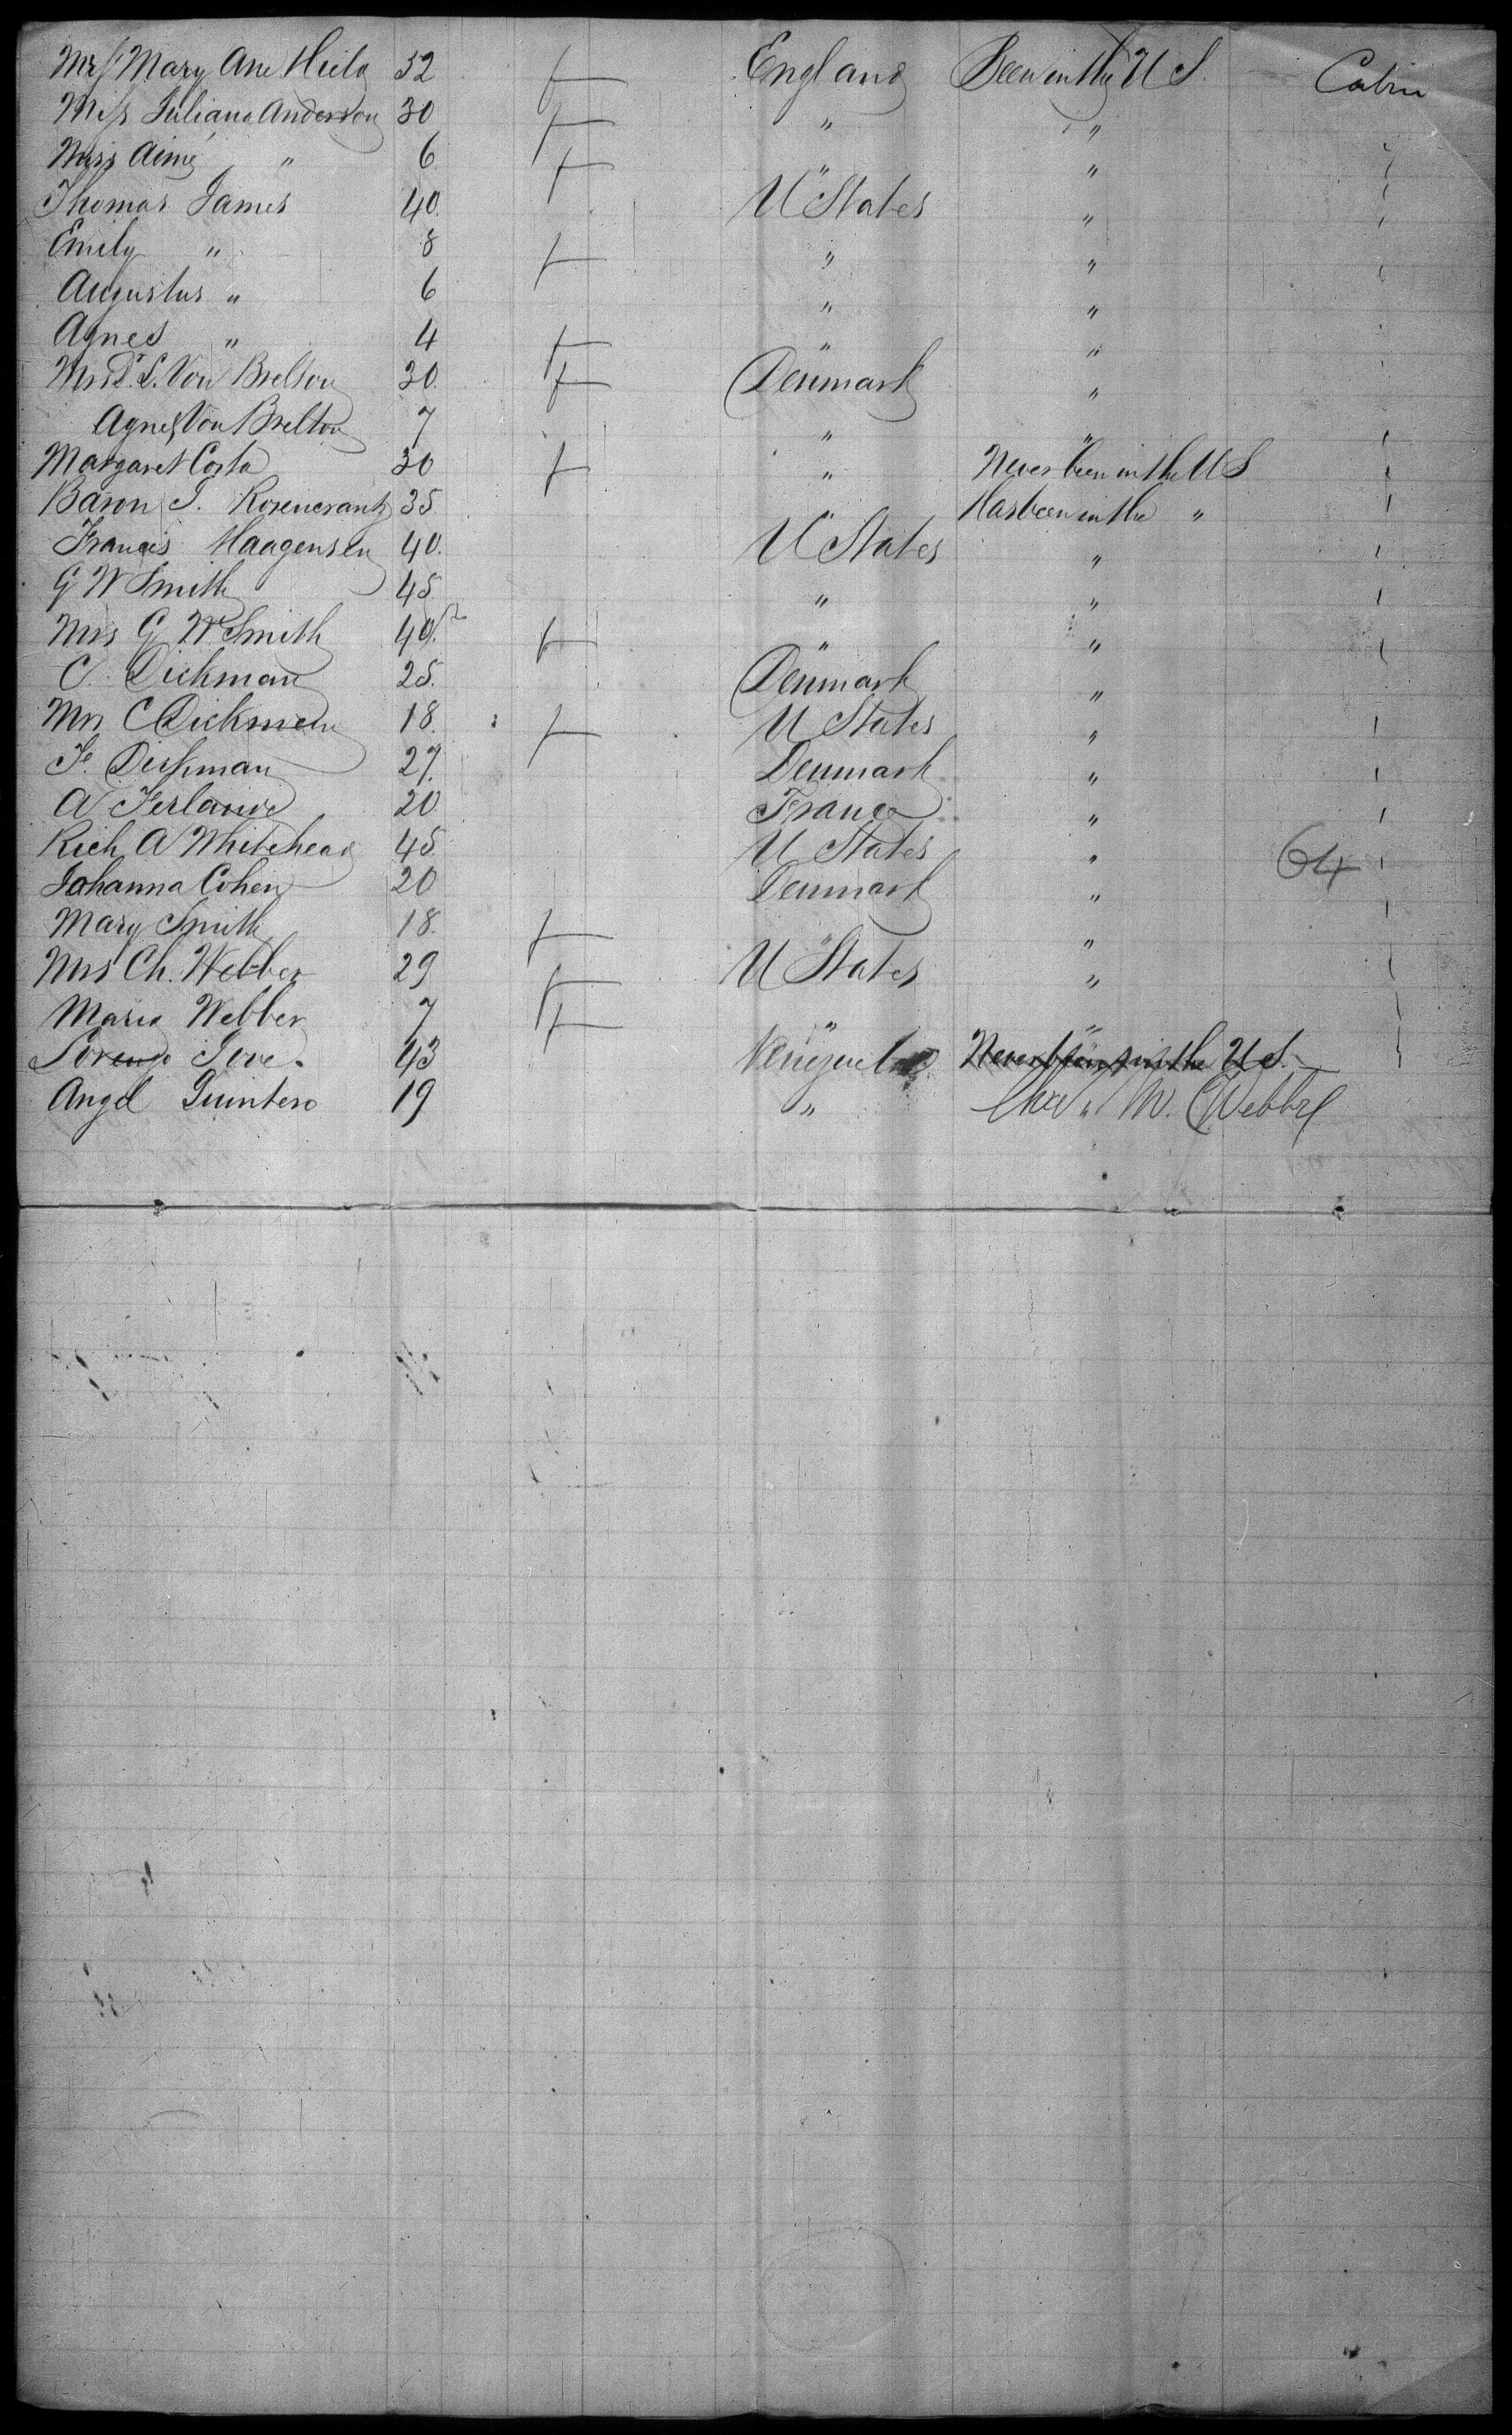 Mrs Mary Ann Hield 32 f England Been in the U S. Cabin
Miss Juliana Anderson 30 f " "
Miss Aimé " 6 f " "
Thomas James 40. U States "
Emily " 8 f " "
Augustus " 6 " "
Agnes " 4 f " "
Mrs Dr. L. Von Brelton 30. f Denmark "
Agnes Von Brelton 7 " "
Margaret Costa 30 f " Never been in the U S
Baron J. Rosencrantz 35 " Has been in the "
Francis Haagensen 40. U States "
G W Smith 45 " "
Mrs G W Smith 40. f " "
C. Dickman 25. Denmark "
Mrs C Dickmen 18. f U States "
F. Dickman 27. Denmark "
A Ferland 20 France "
Rich A Whitehead 45 U States " 64
Johanna Cohen 20 Denmark "
Mary Smith 18. f " "
Mrs Ch. Webber 29 f U States "
Maria Webber 7 f " "
Lorenzo Jove. 43 Venezuela Never been in the U S.
Angel Quintero 19 " " Chas M. Webber